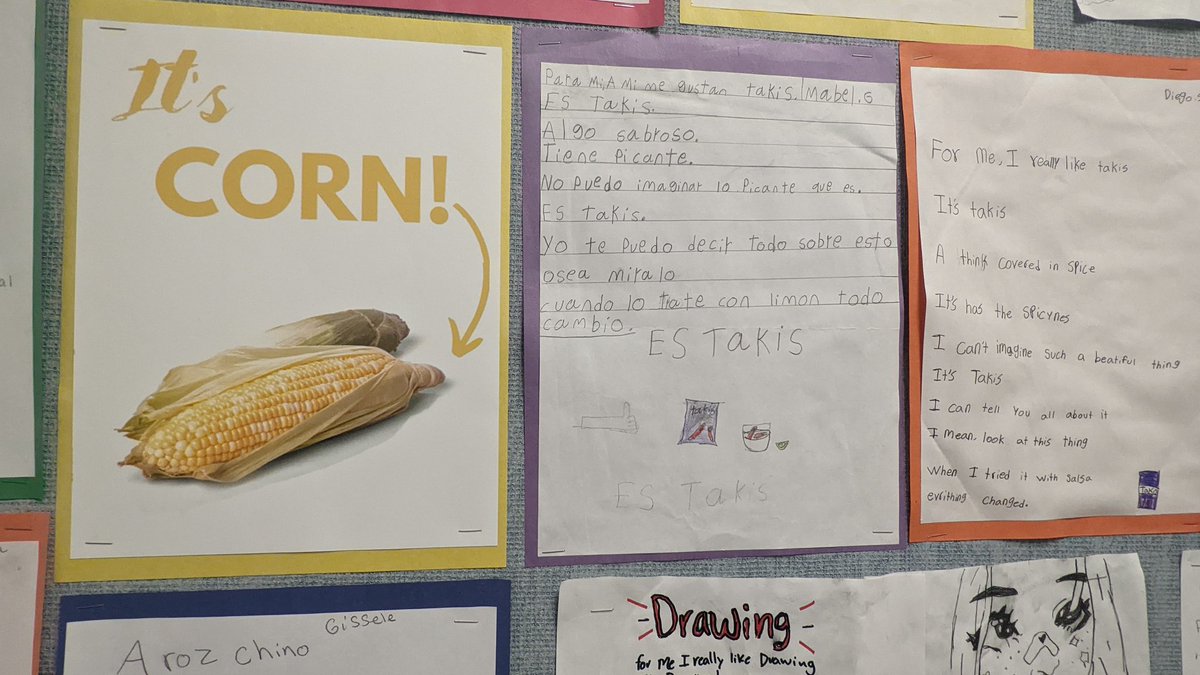 It's
CORN!
Para Mi,A Mi me gustan takis. Mabel.G
ES Takis.
Algo sabroso.
Tiene Picante.
No Puedo imaginar lo Picante que es.
ES takis.
Yo te Puedo decir todo sobre esto
osea miralo
cuando lo trate con limon todo
cambio.
ES TAKIS
takis
ES Takis
Diego.
For me, I really like takis
It's takis
A think covered in spice
It's has the spicynes
I can't imagine such a beatiful thing
It's Takis
I can tell you all about it
I mean, look at this thing
When I tried it with salsa
evrithing changed.
Takis
al
Gissele
Aroz chino
Drawing
for me I really like Drawing